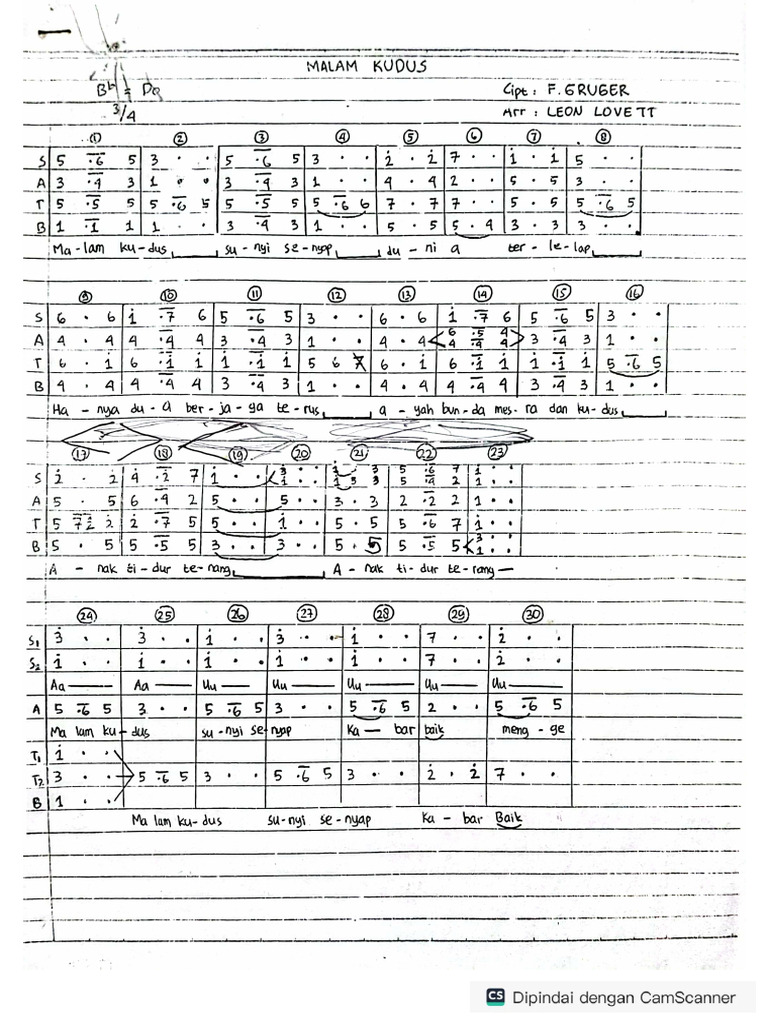 MALAM KUDUS
Bb = Do
3/4
Cipt : F. GRUGER
Arr : LEON LOVETT
① ② ③ ④ ⑤ ⑥ ⑦ ⑧
S 5 .6 5 | 3 . . | 5 .6 5 | 3 . . | 2̇ . 2̇ | 7 . . | 1̇ . 1̇ | 5 . .
A 3 .4 3 | 1 . . | 3 .4 3 | 1 . . | 4 . 4 | 2 . . | 5 . 5 | 3 . .
T 5 .5 5 | 5 .6 5 | 5 .5 5 | 5 .6 6 | 7 . 7 | 7 . . | 5 . 5 | 5 .6 5
B 1 .1 1 | 1 . . | 3 .4 3 | 1 . . | 5 . 5 | 5 . 4 | 3 . 3 | 3 . .
Ma - lam ku - dus____ su - nyi se - nyap____ du - ni a ter - le - lap____
⑨ ⑩ ⑪ ⑫ ⑬ ⑭ ⑮ ⑯
S 6 . 6 | 1̇ .7 6 | 5 .6 5 | 3 . . | 6 . 6 | 1̇ .7 6 | 5 .6 5 | 3 . .
A 4 . 4 | 4 .4 4 | 3 .4 3 | 1 . . | 4 . 4 < 6 .5 4 / 4 .4 4 > 3 .4 3 | 1 . .
T 6 . 1̇ | 6 .1̇ 1̇ | 1̇ .1̇ 1̇ | 5 6 7 | 6 . 1̇ | 6 .1̇ 1̇ | 1̇ .1̇ 1̇ | 5 .6 5
B 4 . 4 | 4 .4 4 | 3 .4 3 | 1 . . | 4 . 4 | 4 .4 4 | 3 .4 3 | 1 . .
Ha - nya du - a ber - ja - ga te - rus____ a - yah bun - da mes - ra dan ku - dus____
⑰ ⑱ ⑲ ⑳ ㉑ ㉒ ㉓
S 2̇ . 2̇ | 4̇ .2̇ 7 | 1̇ . . < 3̇ . . / 1̇ . . | 1̇ . 3̇ / 1̇ 5 3 | 5 .6 7 / 5 .4 2 | 1̇ . . / 1 . .
A 5 . 5 | 6 .4 2 | 5 . . | 5 . . | 3 . 3 | 2 .2 2 | 1 . .
T 5 7 1̇ 2̇ | 2̇ .7 5 | 5 . . | 1̇ . . | 5 . 5 | 5 .6 7 | 1̇ . .
B 5 . 5 | 5 .5 5 | 3 . . | 3 . . | 5 . 5 | 5 .5 5 < 3 . . / 1 . .
A - nak ti - dur te - nang____ A - nak ti - dur te - rang —
㉔ ㉕ ㉖ ㉗ ㉘ ㉙ ㉚
S1 3̇ . . | 3̇ . . | 1̇ . . | 3̇ . . | 1̇ . . | 7 . . | 2̇ . .
S2 1̇ . . | 1̇ . . | 1̇ . . | 1̇ . . | 1̇ . . | 7 . . | 2̇ . .
Aa — Aa — Uu — Uu — Uu — Uu — Uu —
A 5 .6 5 | 3 . . | 5 .6 5 | 3 . . | 5 .6 5 | 2 . . | 5 .6 5
Ma lam ku - dus su - nyi se - nyap Ka — bar baik meng - ge
T1 1̇ . .
T2 3 . . > 5 .6 5 | 3 . . | 5 .6 5 | 3 . . | 2̇ . 2̇ | 7 . .
B 1 . .
Ma lam ku - dus su - nyi se - nyap Ka - bar Baik
CS Dipindai dengan CamScanner